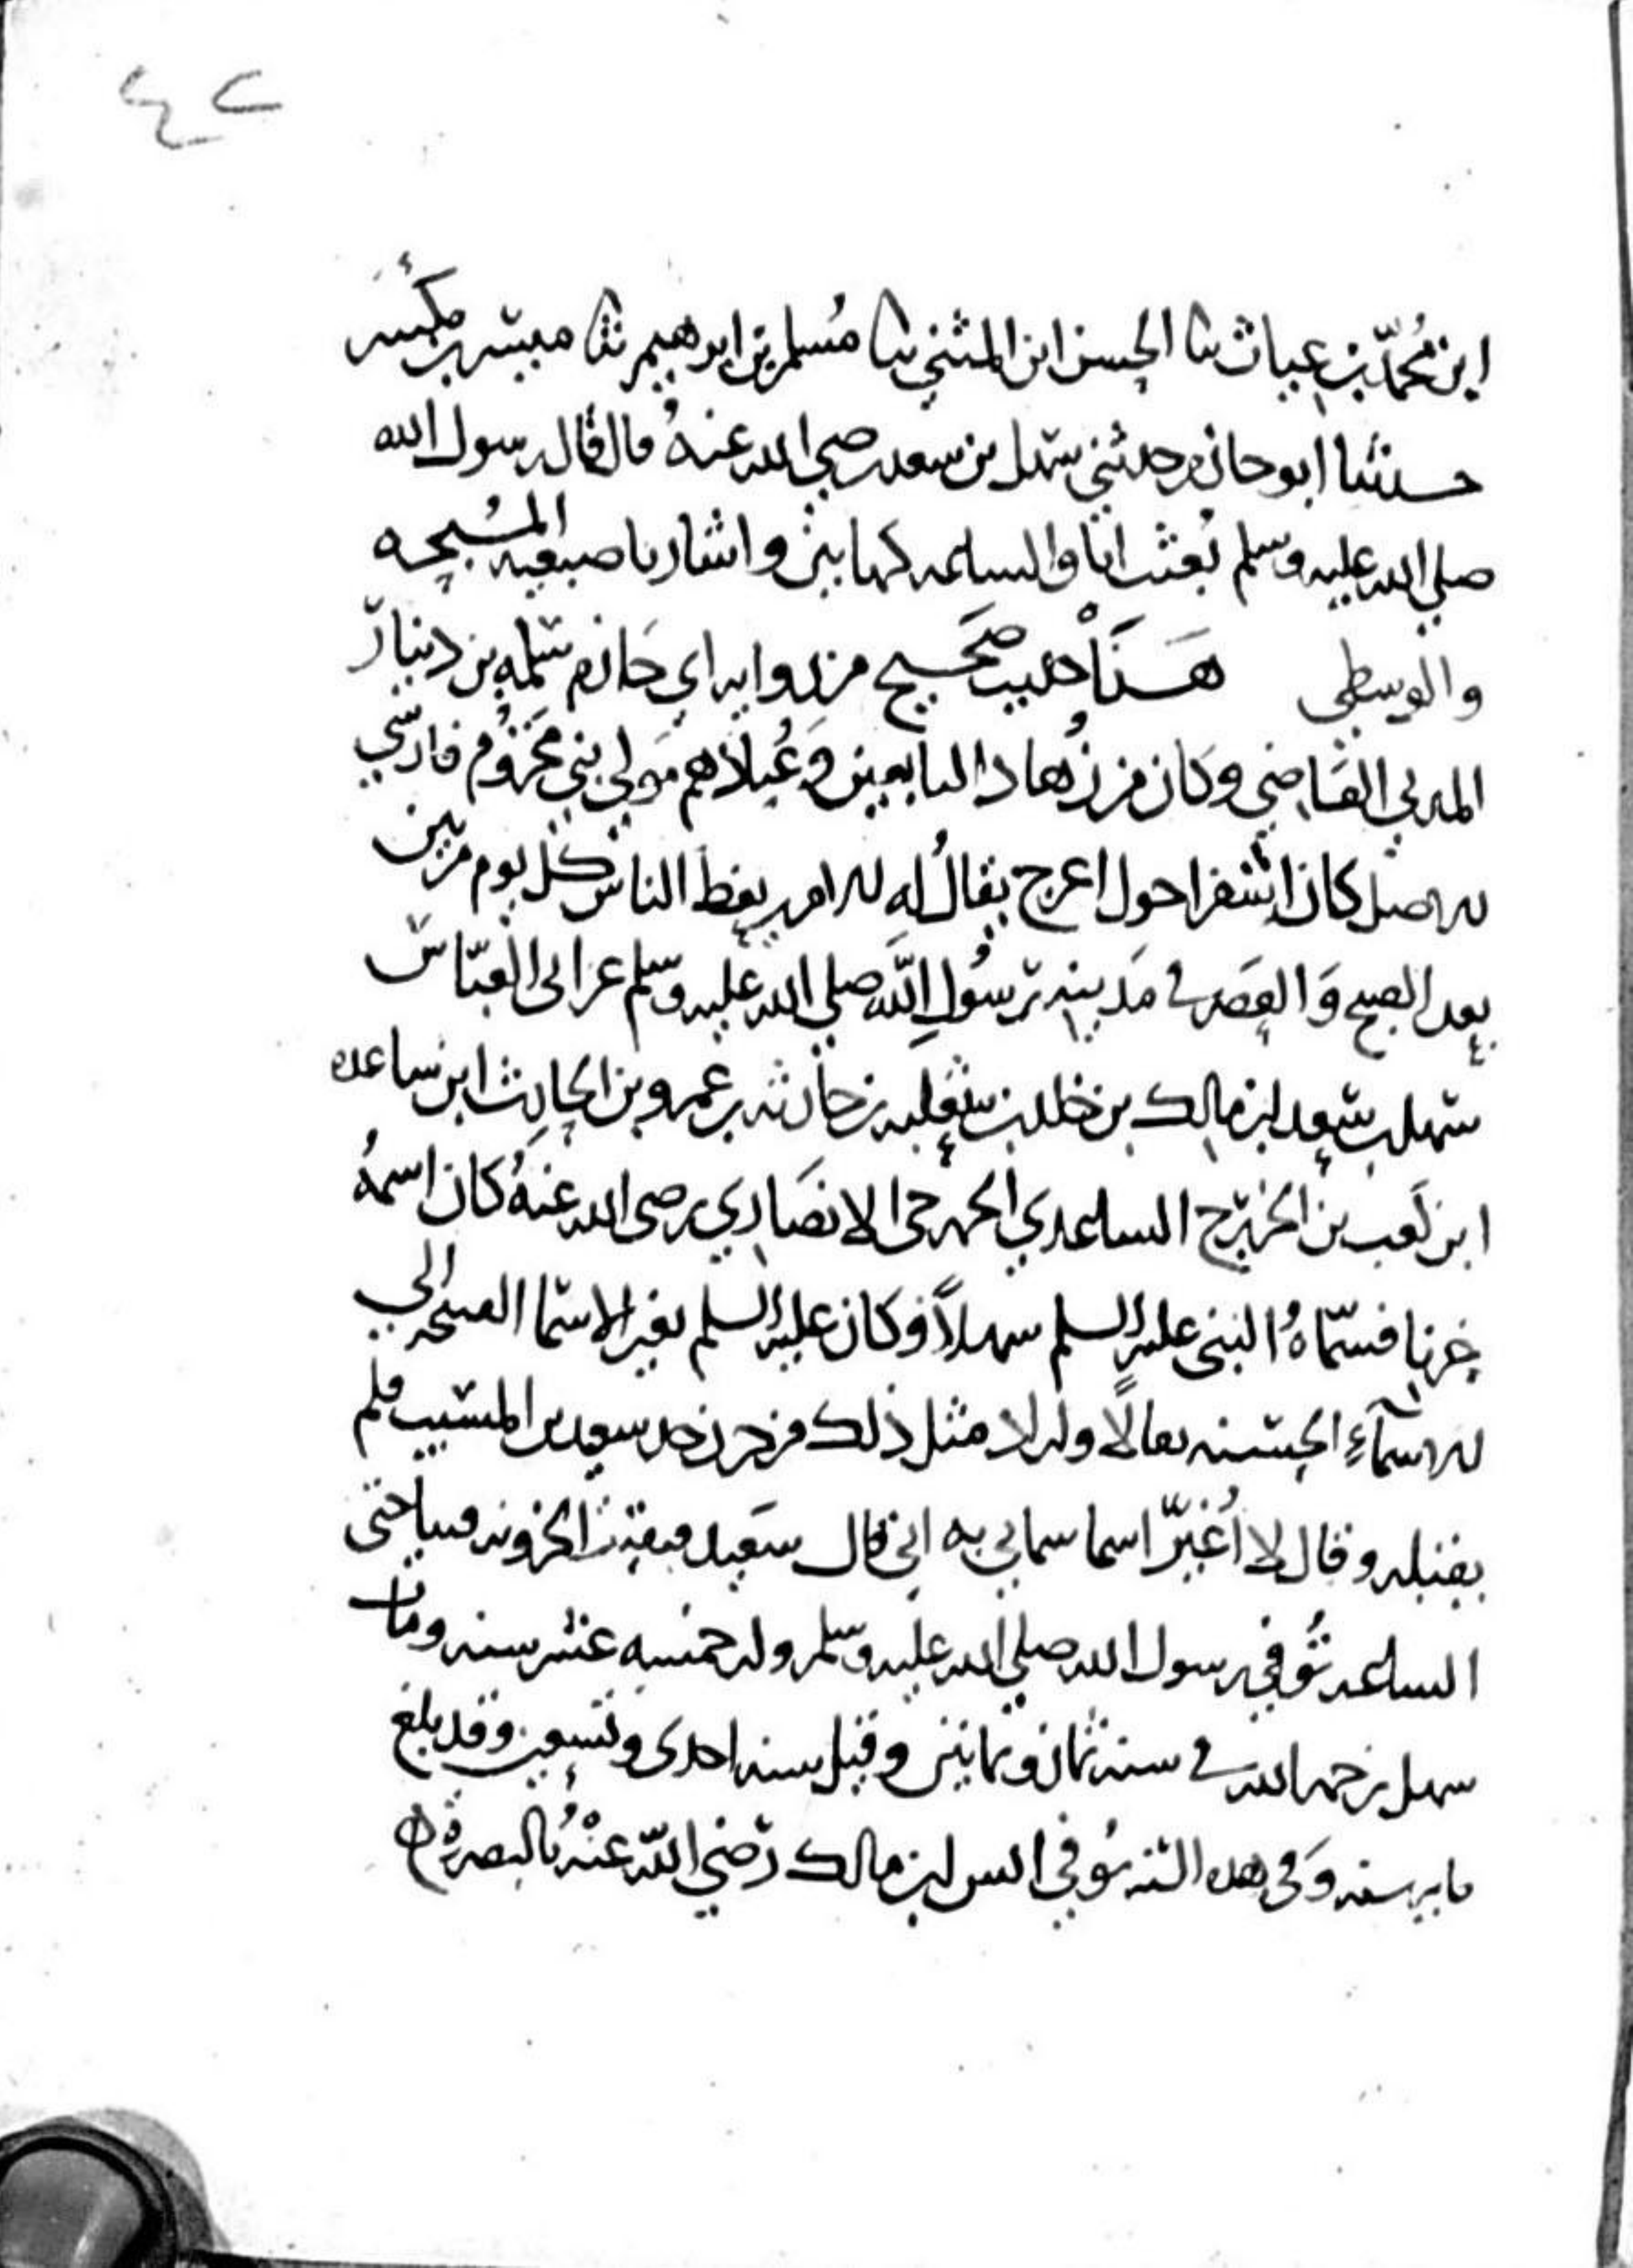 ٤٢
ابن محمد بن غياث ثنا الحسن ابن المثنى ثنا مُسلم بن ابرهيم ثنا مبشر بن مكسر
حدثنا ابو حازم حدثني سهل بن سعد رضي الله عنهُ قال قال رسول الله
صلي الله عليه وسلم بُعثت انا والساعه كهاتين واشار باصبعيه المسُبحه
والوسطي هَذَا حديث صَحيح من روايه ابي حَازم سَلمه بن دينار
المدني القاضي وكان من زُهاد التابعين وَعُبادهم مَولي بني مَخزُوم فارسي
له اصل كان اشقر احول اعرج يقالُ له امه يعظ الناس كل يوم مرتين
بعد الصبح وَالعَصر في مَدينه رسُولِ الله صلي الله عليه وسلم عن ابى العبّاس
سهل بن سعد ابن مالك بن خلد بن ثعلبه بن حارثه بن عمرو بن الحارث ابن ساعده
ابن كعب بن الخزرج الساعدي الخزرجى الانصَاري رضى الله عنهُ كان اسمهُ
حزنا فسمّاهُ النبى عليه السلم سهلاً وكان عليه السلم يغير الاسما القبيحه الي
الاسمآءِ الحسنه تفالًا واراد مثل ذلك من حزن جد سعيد بن المسيب فلم
يقبله وقال لا اُغيّر اسما سماني به ابي قال سَعيد فبقيت الحزونه فينا حتى
الساعه تُوفي رسول الله صلي الله عليه وسلم وله خمسه عشر سنه ومات
سهل رحمه الله في سنه ثمان وثمانين وقيل سنه احدى وتسعين وقد بلغ
مايه سنه وَفي هذه السنه تُوفي انس ابن مالك رَضي الله عنْهُ بالبصره